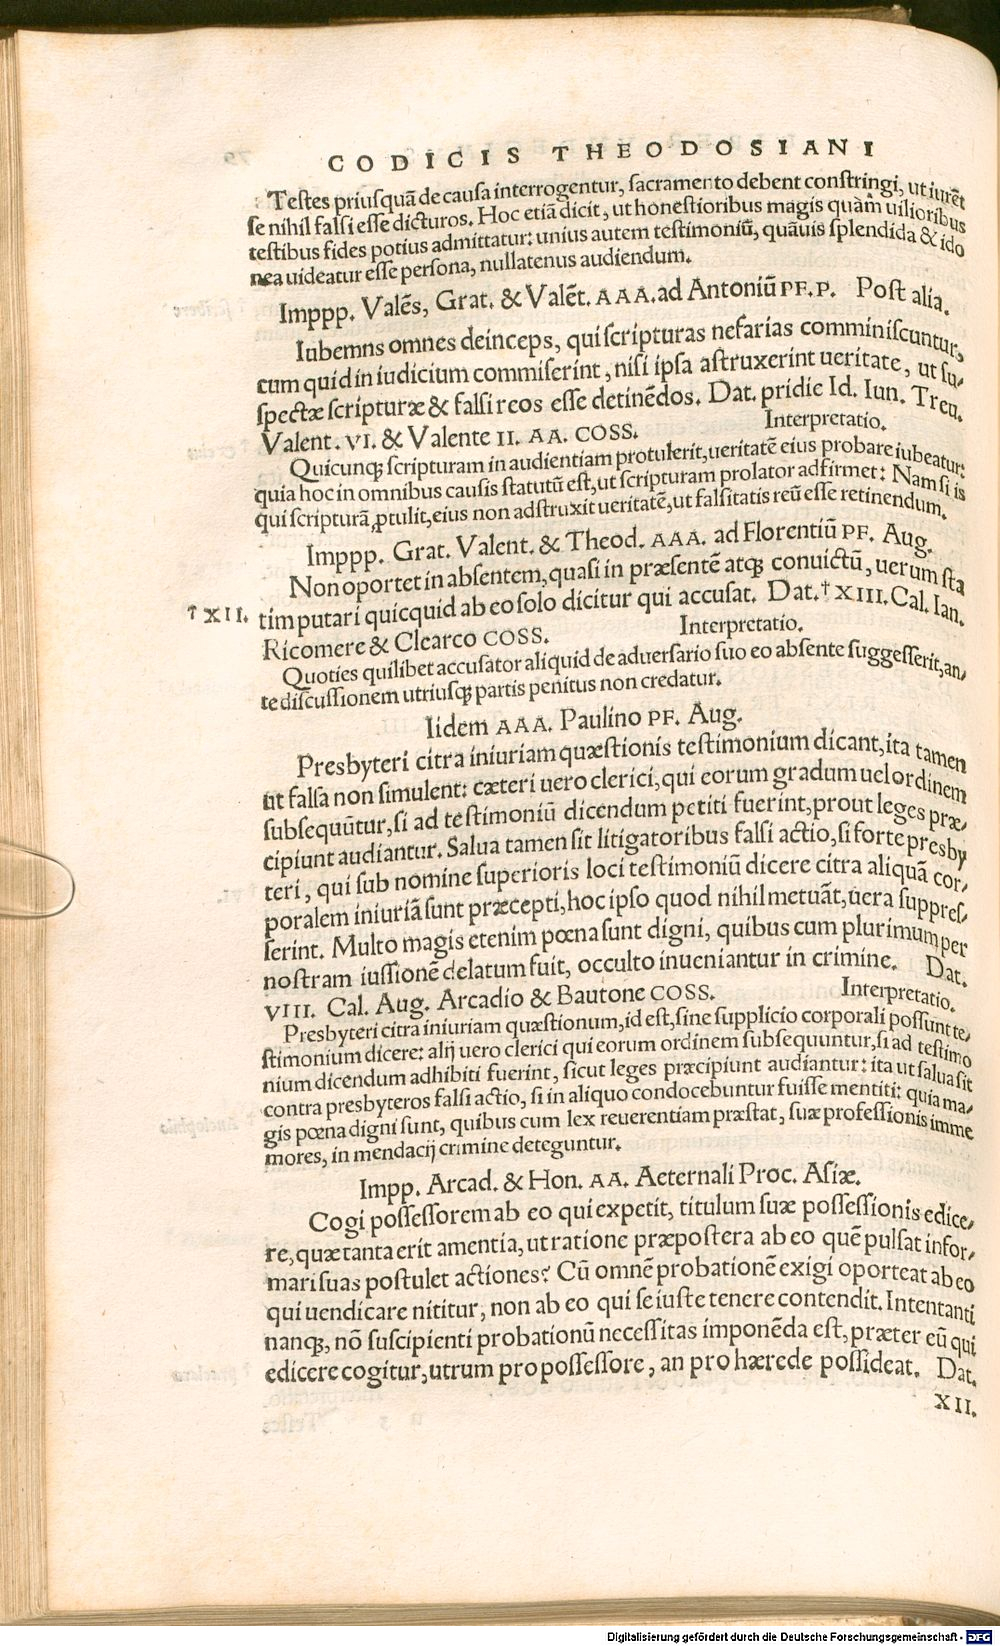 CODICIS THEODOSIANI
Testes priusquã de causa interrogentur, sacramento debent constringi, ut iurẽt
se nihil falsi esse dicturos. Hoc etiã dicit, ut honestioribus magis quàm uilioribus
testibus fides potius admittatur: unius autem testimoniũ, quãuis splendida & ido
nea uideatur esse persona, nullatenus audiendum.
Imppp. Valẽs, Grat. & Valẽt. AAA. ad Antoniũ PF. P. Post alia.
Iubemns omnes deinceps, qui scripturas nefarias comminiscuntur,
cum quid in iudicium commiserint, nisi ipsa astruxerint ueritate, ut su-
spectæ scripturæ & falsi reos esse detinẽdos. Dat. pridie Id. Iun. Treu.
Valent. VI. & Valente II. AA. COSS. Interpretatio.
Quicunq; scripturam in audientiam protulerit, ueritatẽ eius probare iubeatur:
quia hoc in omnibus causis statutũ est, ut scripturam prolator adfirmet: Nam si is
qui scripturã ꝓtulit, eius non adstruxit ueritatẽ, ut falsitatis reũ esse retinendum.
Imppp. Grat. Valent. & Theod. AAA. ad Florentiũ PF. Aug.
Non oportet in absentem, quasi in præsentẽ atq; conuictũ, uerum sta
†XII. tim putari quicquid ab eo solo dicitur qui accusat. Dat. †XIII. Cal. Ian.
Ricomere & Clearco COSS. Interpretatio.
Quoties quilibet accusator aliquid de aduersario suo eo absente suggesserit, an-
te discussionem utriusq; partis penitus non credatur.
Iidem AAA. Paulino PF. Aug.
Presbyteri citra iniuriam quæstionis testimonium dicant, ita tamen
ut falsa non simulent: cæteri uero clerici, qui eorum gradum uel ordinem
subsequũtur, si ad testimoniũ dicendum petiti fuerint, prout leges præ-
cipiunt audiantur. Salua tamen sit litigatoribus falsi actio, si forte presby
teri, qui sub nomine superioris loci testimoniũ dicere citra aliquã cor-
poralem iniuriã sunt præcepti, hoc ipso quod nihil metuãt, uera suppres-
serint. Multo magis etenim pœna sunt digni, quibus cum plurimum per
nostram iussionẽ delatum fuit, occulto inueniantur in crimine. Dat.
VIII. Cal. Aug. Arcadio & Bautone COSS. Interpretatio.
Presbyteri citra iniuriam quæstionum, id est, sine supplicio corporali possunt te-
stimonium dicere: alij uero clerici qui eorum ordinem subsequuntur, si ad testimo
nium dicendum adhibiti fuerint, sicut leges præcipiunt audiantur: ita ut salua sit
contra presbyteros falsi actio, si in aliquo condocebuntur fuisse mentiti: quia ma-
gis pœna digni sunt, quibus cum lex reuerentiam præstat, suæ professionis imme
mores, in mendacij crimine deteguntur.
Impp. Arcad. & Hon. AA. Aeternali Proc. Asiæ.
Cogi possessorem ab eo qui expetit, titulum suæ possessionis edice-
re, quæ tanta erit amentia, ut ratione præpostera ab eo quẽ pulsat infor-
mari suas postulet actiones? Cũ omnẽ probationẽ exigi oporteat ab eo
qui uendicare nititur, non ab eo qui se iuste tenere contendit. Intentanti
nanq;, nõ suscipienti probationũ necessitas imponẽda est, præter eũ qui
edicere cogitur, utrum pro possessore, an pro hærede possideat. Dat.
XII.
Digitalisierung gefördert durch die Deutsche Forschungsgemeinschaft - DFG